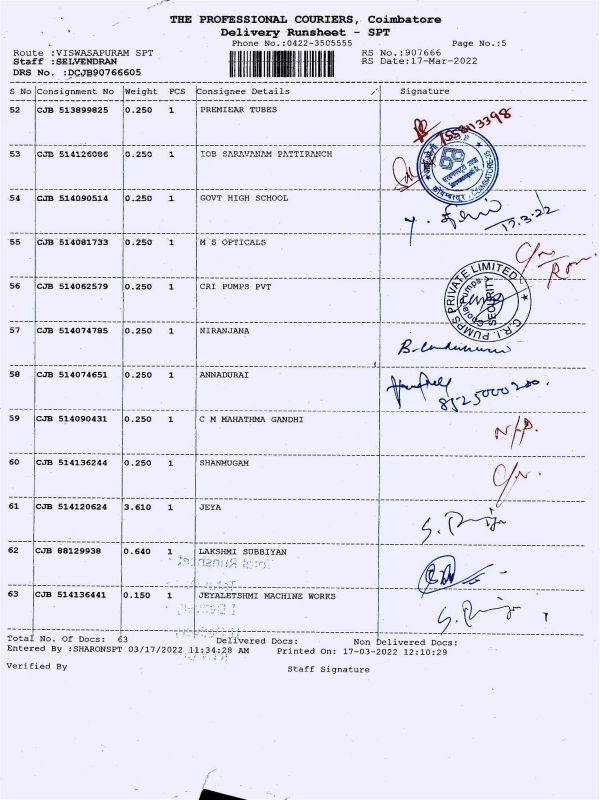 THE PROFESSIONAL COURIERS, Coimbatore
Delivery Runsheet - SPT
Phone No.:0422-3505555 Page No.:5
Route :VISWASAPURAM SPT RS No.:907666
Staff :SELVENDRAN RS Date:17-Mar-2022
DRS No. :DCJB90766605
S No Consignment No Weight PCS Consignee Details Signature
52 CJB 513899825 0.250 1 PREMIEAR TUBES
53 CJB 514126086 0.250 1 IOB SARAVANAM PATTIRANCH
54 CJB 514090514 0.250 1 GOVT HIGH SCHOOL
17.3.22
55 CJB 514081733 0.250 1 M S OPTICALS
56 CJB 514062579 0.250 1 CRI PUMPS PVT
C.R.I. PUMPS PRIVATE LIMITED
SECURITY
57 CJB 514074785 0.250 1 NIRANJANA
58 CJB 514074651 0.250 1 ANNADURAI
8525000200.
59 CJB 514090431 0.250 1 C M MAHATHMA GANDHI
60 CJB 514136244 0.250 1 SHANMUGAM
61 CJB 514120624 3.610 1 JEYA
62 CJB 88129938 0.640 1 LAKSHMI SUBBIYAN
63 CJB 514136441 0.150 1 JEYALETSHMI MACHINE WORKS
Total No. Of Docs: 63 Delivered Docs: Non Delivered Docs:
Entered By :SHARONSPT 03/17/2022 11:34:28 AM Printed On: 17-03-2022 12:10:29
Verified By Staff Signature